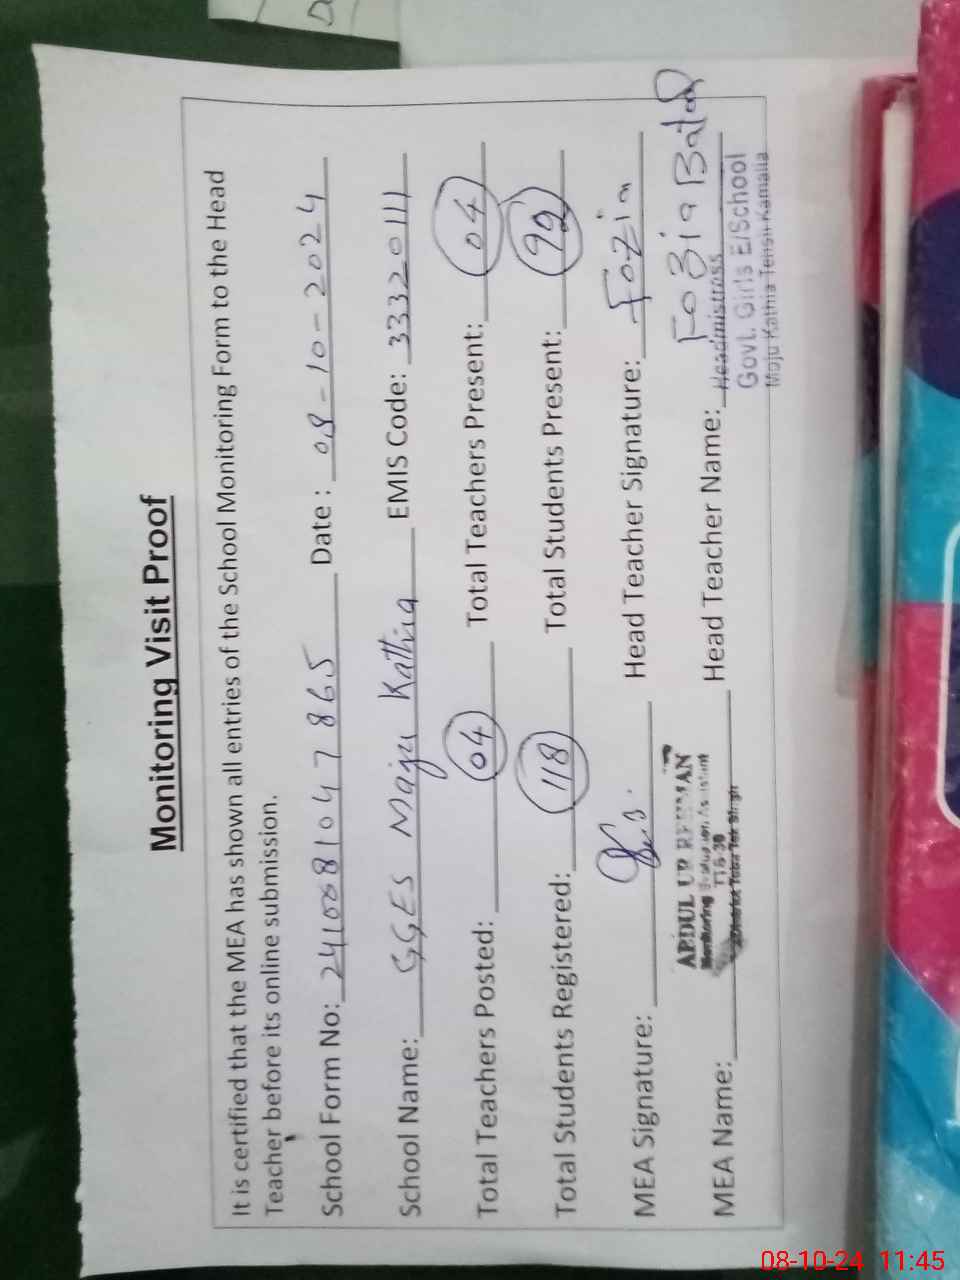 Monitoring Visit Proof
It is certified that the MEA has shown all entries of the School Monitoring Form to the Head
Teacher before its online submission.
School Form No: 2410081047865 Date : 08-10-2024
School Name: GGES Maju Kathia EMIS Code: 33320111
Total Teachers Posted: 04 Total Teachers Present: 04
Total Students Registered: 118 Total Students Present: 99
MEA Signature: Head Teacher Signature: Fozia
MEA Name: Head Teacher Name: Fozia Batool
ABDUL UR REHMAN
Monitoring Evaluation Assistant
TTS-30
District Toba Tek Singh
Headmistress
Govt. Girls E/School
Moju Kathia Tehsil Kamalia
08-10-24 11:45